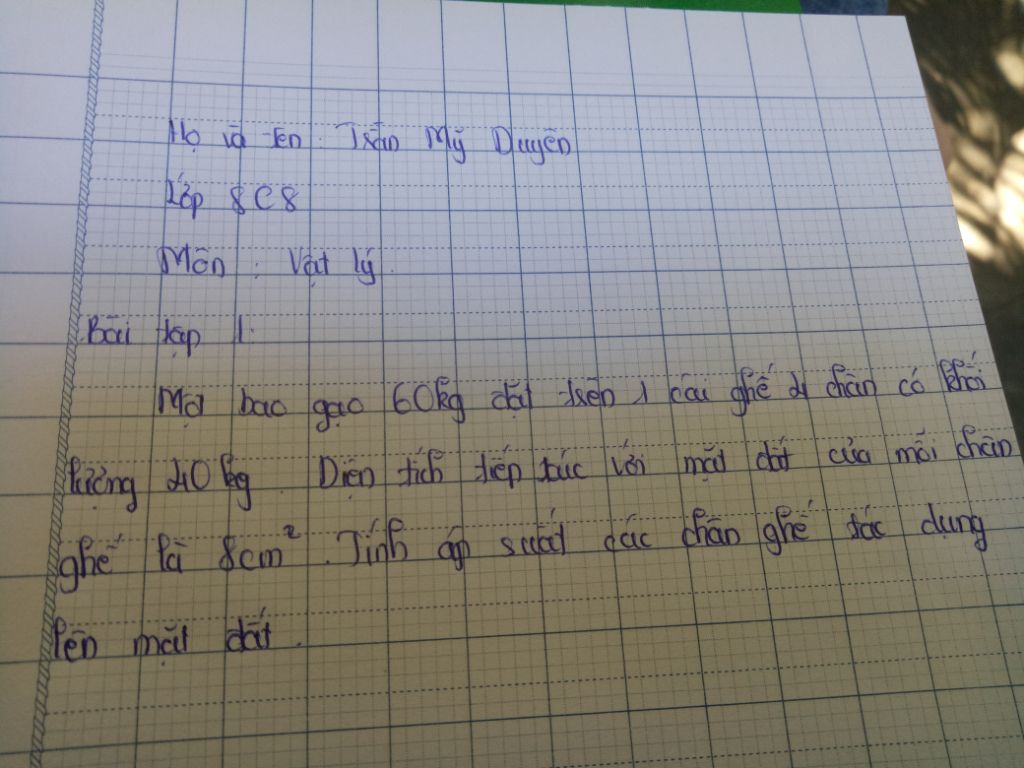 Họ và tên : Trần Mỹ Duyên
Lớp 8C8
Môn : Vật lý.
Bài tập 1:
Một bao gạo 60kg đặt trên 1 cái ghế 4 chân có khối
lượng 40kg. Diện tích tiếp túc với mặt đất của mỗi chân
ghế là 8cm². Tính áp suất các chân ghế tác dụng
lên mặt đất.